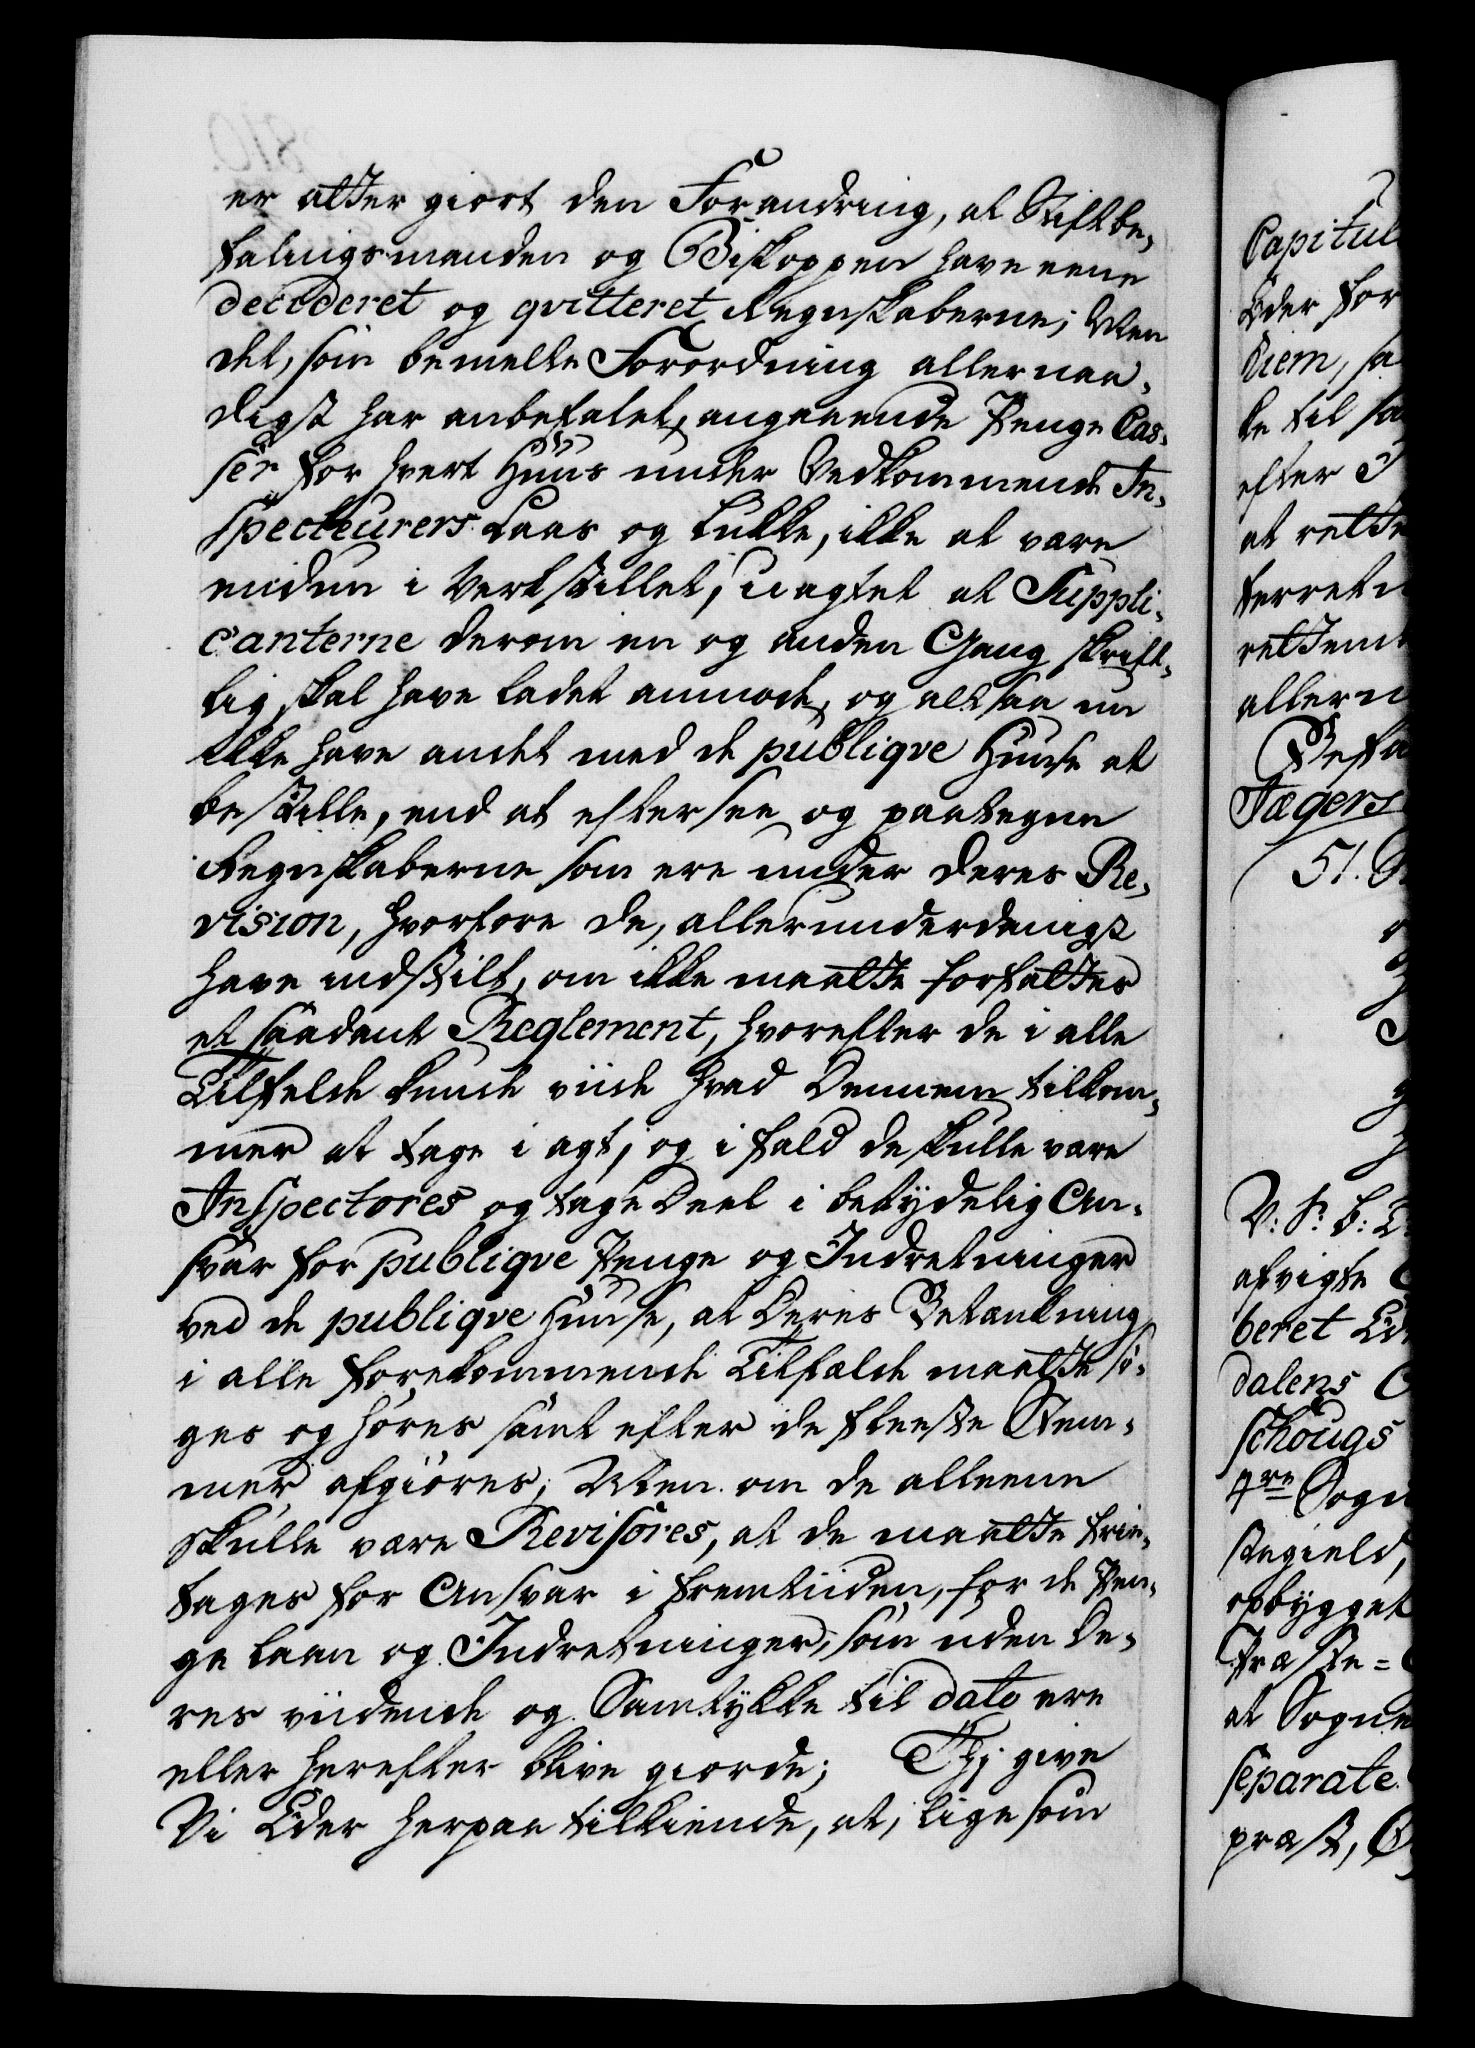 er atter giort den Forandring, at Stiftbe,
falingsmanden og Biskoppen have eene
decideret og qvitteret Regnskaberne; Men
det, som bemelte Forordning allernaa,
digst har anbefalet, angaaende Penge Cas,
ser for hvert Huus under Vedkommende In,
specteurers Laas og Lukke, ikke at være
enden i Verkstillet, uagtet at Suppli,
canterne derom en og anden Gang skrift,
lig skal have ladet anmode, og altsaa nu
ikke have andet med de publiqve Huuse at
bestille, end at eftersee og paategne
Regnskaberne som ere under deres Re,
vision, hvorfore de, allerunderdanigst
have indstilt, om ikke maatte forfattes
et saadant Reglement, hvorefter de i alle
Tilfælde kunde viide hvad Dennem tilkom,
mer at tage i agt, og i fald de skulle være
Inspectores og tage Deel i betydelig An,
svar for publiqve Penge og Indretninger
ved de publiqve Huuse, at Deres Betænkning
i alle forekommende Tilfælde maatte sø,
ges og høres samt efter de fleeste Stem,
mer afgiøres; Men om de alleene
skulle være Revisores, at de maatte frie,
tages for Ansvar i Fremtiiden, for de Pen,
ge laan og Indretninger, som uden De,
res viidende og Samtykke til dato ere
eller herefter blive giorde; Thi give
Vi Eder herpaa tilkiende, at, ligesom
Capitul
Eder for
diem, sa
te til sa
efter I
at rette
ferret
rettem
allern
Befa
Jægers
51.
V: S: b:
afvigte
beret Ed
dalens
schougs
4re Sogn
stegield,
opbygget
Præste=
at Sogne
separate
præst,